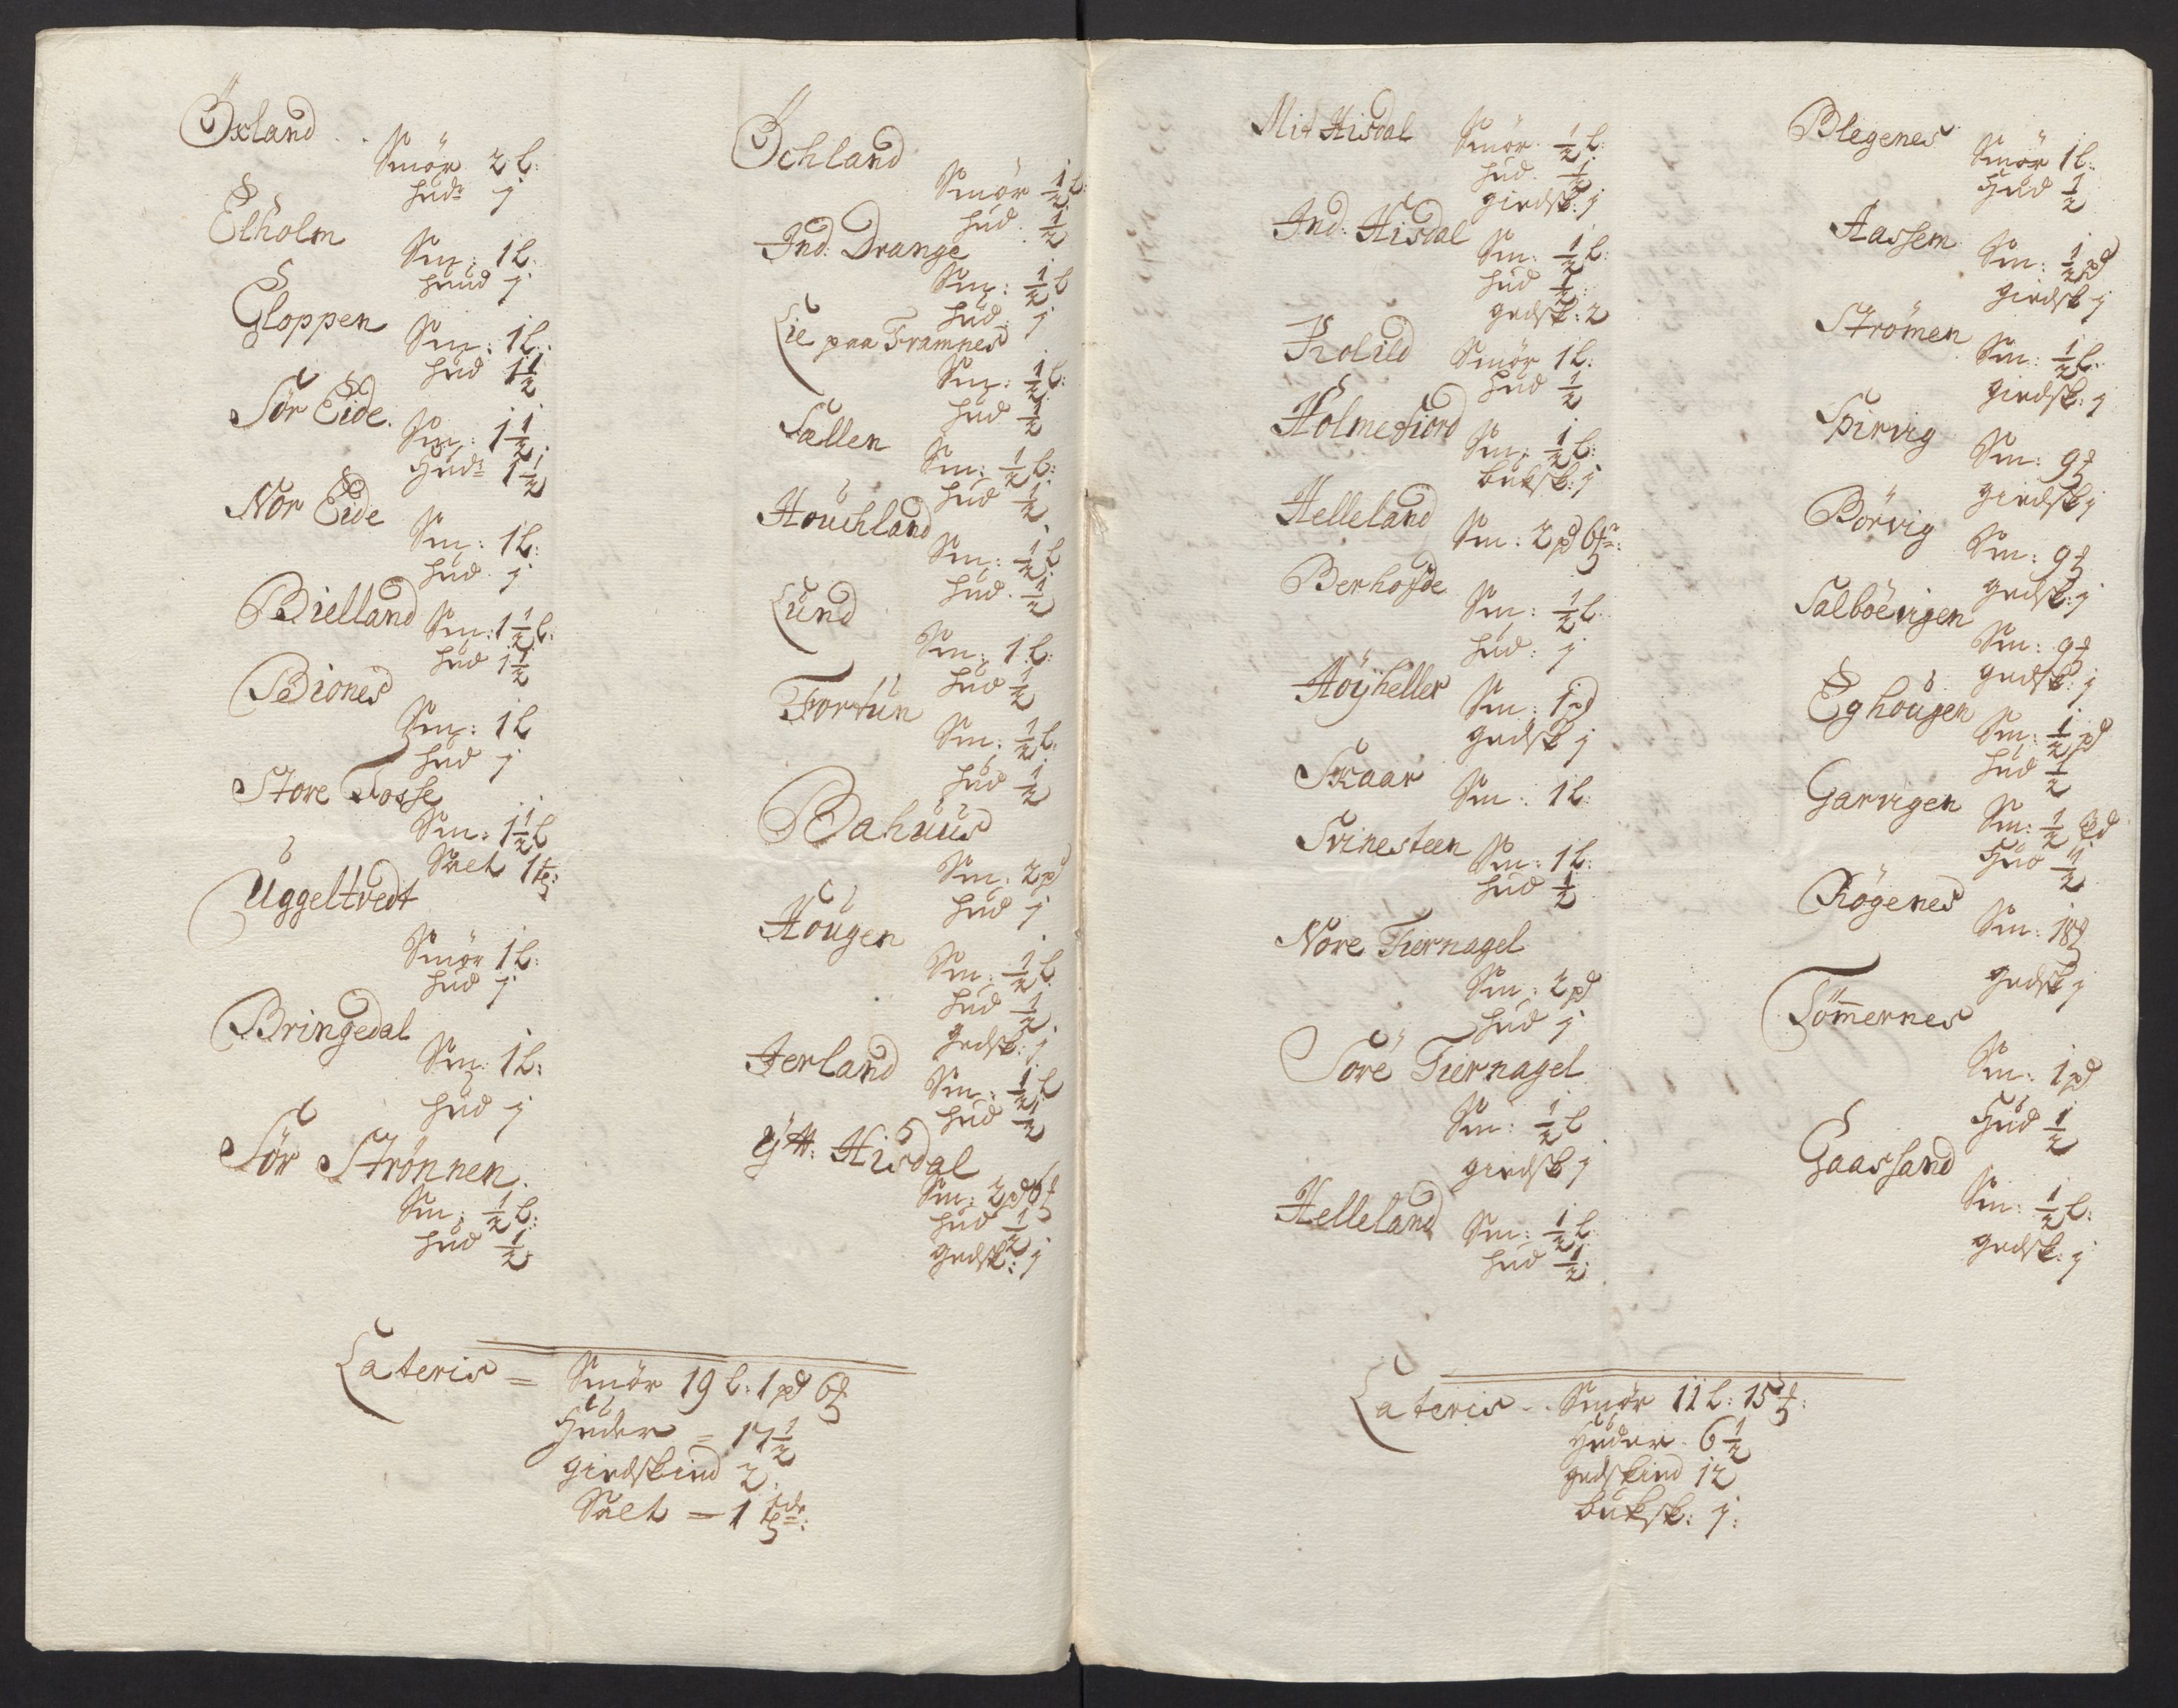 Öxland
Smör 2 l:
hudr j
Elholm
Sm: 1 l:
huud j
Gloppen
Sm: 1 l:
hud 1 1/2
Sör Eide.
Sm: 1 1/2.
Hudr 1 1/2
Nor Eide
Sm: 1 l:
hud j
Bielland Sm: 1 1/2 l:
hud 1 1/2
Biones
Sm: 1 l
hud j
Store Fosse
Sm: 1 1/2 l
Salt 1 t:
Uggeltvedt
Smör 1 l:
hud j
Bringedal
Sm: 1 l:
hud j
Sör Strönnen.
Sm: 1/2 l:
hud 1/2
Lateris = Smör 19 l: 1 pd 6 t
Huder = 17 1/2
giedskind 2.
Salt = 1 tdr:
Öchland
Smör 1/2 l:
hud 1/2
Ind: Drange
Sm: 1/2 l
hud j
Lie paa Framnes
Sm: 1/2 l:
hud 1/2
Sællen
Sm: 1/2 l:
hud 1/2
Houchland
Sm: 1/2 l
hud 1/2
Lund
Sm: 1 l:
hud 1/2
Fortun
Sm: 1/2 l:
hud 1/2
Bahuus
Sm: 2 pd
hud j
Hougen
Sm: 1/2 l
hud 1/2.
gedsk: j
Jerland
Sm: 1/2 l
hud 1/2
Ytt: Hisdal
Sm: 2 pd 6 t
hud 1/2
gedsk: j
Mit Hisdal Smör 1/2 l:
hud 1/2
giedsk: j
Ind: Hisdal
Sm: 1/2 l:
hud 1/2:
gedsk: 2
Kolild Smör 1 l:
hud 1/2
Holmefiord
Sm: 1/2 l:
buksk: j
Helleland
Sm: 2 pd 6 t:
Berhofde
Sm: 1/2 l
hud: j
Höyheller
Sm: 1 pd
gedsk j
Skaar
Sm: 1 l:
Svinesteen Sm: 1 l:
hud 1/2
Nore Tiernagel
Sm: 2 pd
hud j
Söre Tiernagel
Sm: 1/2 l
giedsk j
Helleland Sm: 1/2 l
hud 1/2:
Lateris - Smör 11 l: 15 t:
Huder 6 1/2
gedskind 12
buksk: j:
Blegenes
Smör 1 l:
Hud 1/2
Aassem
Sm: 1/2 pd
giedsk j
Strömen
Sm: 1/2 l:
giedsk: j
Spirvig
Sm: 9 t
giedsk j
Börvig
Sm: 9 t
gedsk: j
Salböevigen
Sm: 9 t
gedsk: j
Eghougen
Sm: 1/2 pd
hud 1/2
Garvigen
Sm: 1/2 pd
Hud 1/2
Rögenes
Sm: 18 t
gedsk j
Tömmernes
Sm: 1 pd
Hud 1/2
Gaassand
Sm: 1/2 l:
gedsk: j